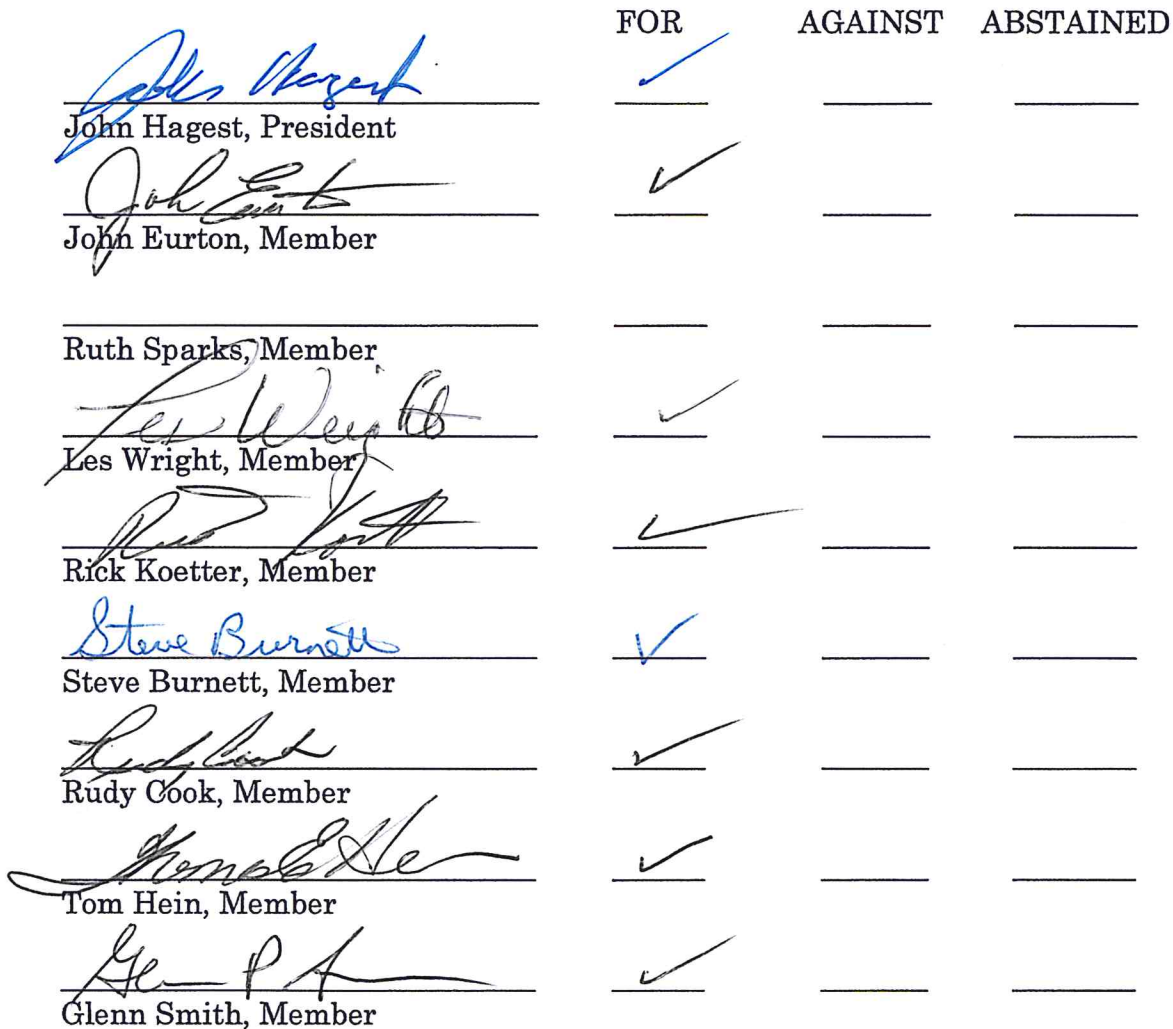 FOR AGAINST ABSTAINED
John Hagest ✓
John Hagest, President
John Eurton ✓
John Eurton, Member
Ruth Sparks, Member
Les Wright ✓
Les Wright, Member
Rick Koetter ✓
Rick Koetter, Member
Steve Burnett ✓
Steve Burnett, Member
Rudy Cook ✓
Rudy Cook, Member
Thomas E Hein ✓
Tom Hein, Member
Glenn P Smith ✓
Glenn Smith, Member